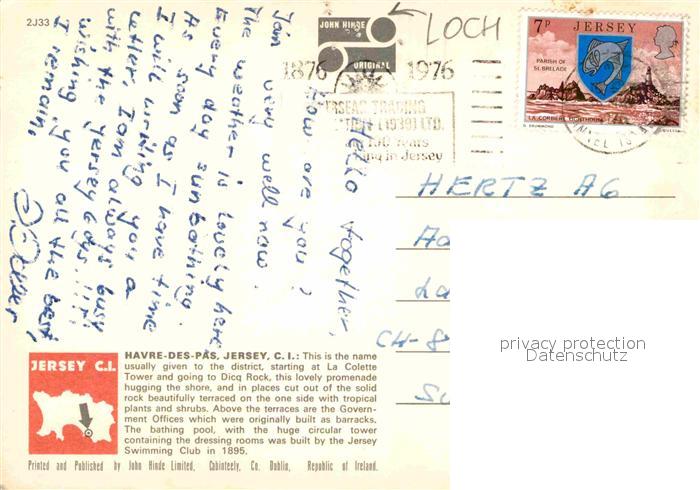 2J33
JOHN HINDE
ORIGINAL
LOCH
7P JERSEY
PARISH OF
ST. BRELADE
LA CORBIERE LIGHTHOUSE
1876 1976
OVERSEAS TRADING
(1939) LTD.
in Jersey
Hello together,
How are you?
I am very well now.
The weather is lovely here,
Every day sunbathing.
As soon as I have time
I will writing you a
letter. I am always busy
with the Jersey Boys.!!!!
wishing you all the best,
I remain,
HERTZ AG
CH-8
privacy protection
Datenschutz
JERSEY C.I.
HAVRE-DES-PAS, JERSEY, C. I.: This is the name
usually given to the district, starting at La Colette
Tower and going to Dicq Rock, this lovely promenade
hugging the shore, and in places cut out of the solid
rock beautifully terraced on the one side with tropical
plants and shrubs. Above the terraces are the Govern-
ment Offices which were originally built as barracks.
The bathing pool, with the huge circular tower
containing the dressing rooms was built by the Jersey
Swimming Club in 1895.
Printed and Published by John Hinde Limited, Cabinteely, Co. Dublin, Republic of Ireland.